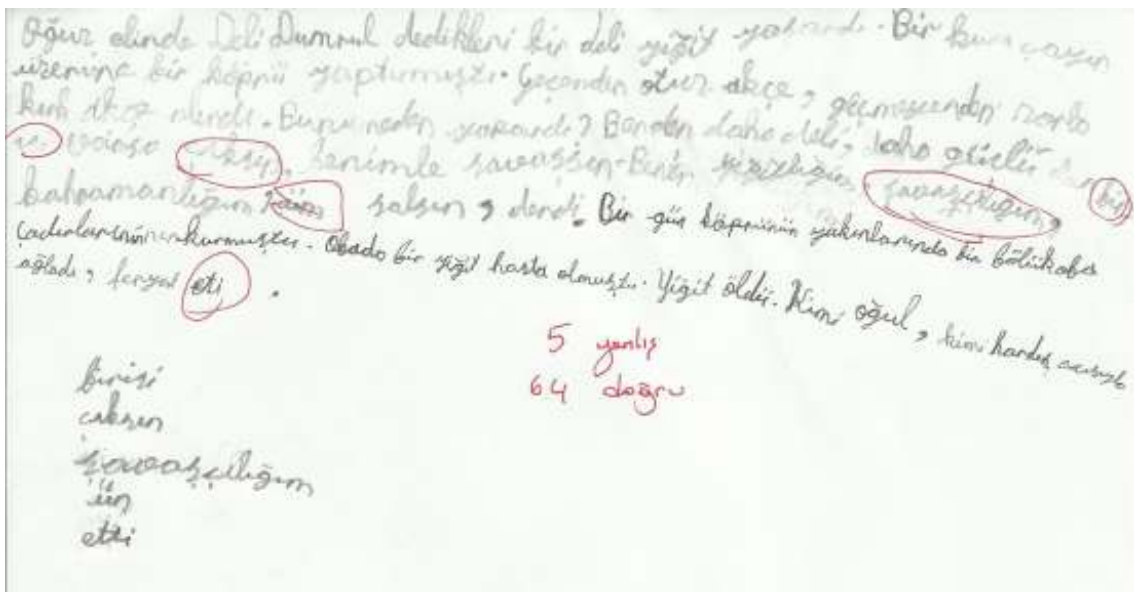 Oğuz elinde Deli Dumrul dedikleri bir deli yiğit yaşardı. Bir kuru çayın
üzerine bir köprü yaptırmıştı. Geçenden otuz akçe, geçmeyenden zorla
kırk akçe alırdı. Bunu neden yapardı? Benden daha deli, daha güçlü bir
varsa çıksın, benimle savaşsın. Benim yiğitliğim, savaşçılığım,
kahramanlığım ün salsın, derdi. Bir gün köprünün yakınlarında bir bölük oba
çadırlarını kurmuştu. Obada bir yiğit hasta olmuştu. Yiğit öldü. Kimi oğul, kimi kardeş
ağladı, feryat eti.
5 yanlış
64 doğru
birisi
çıksın
savaşçılığım
ün
etti